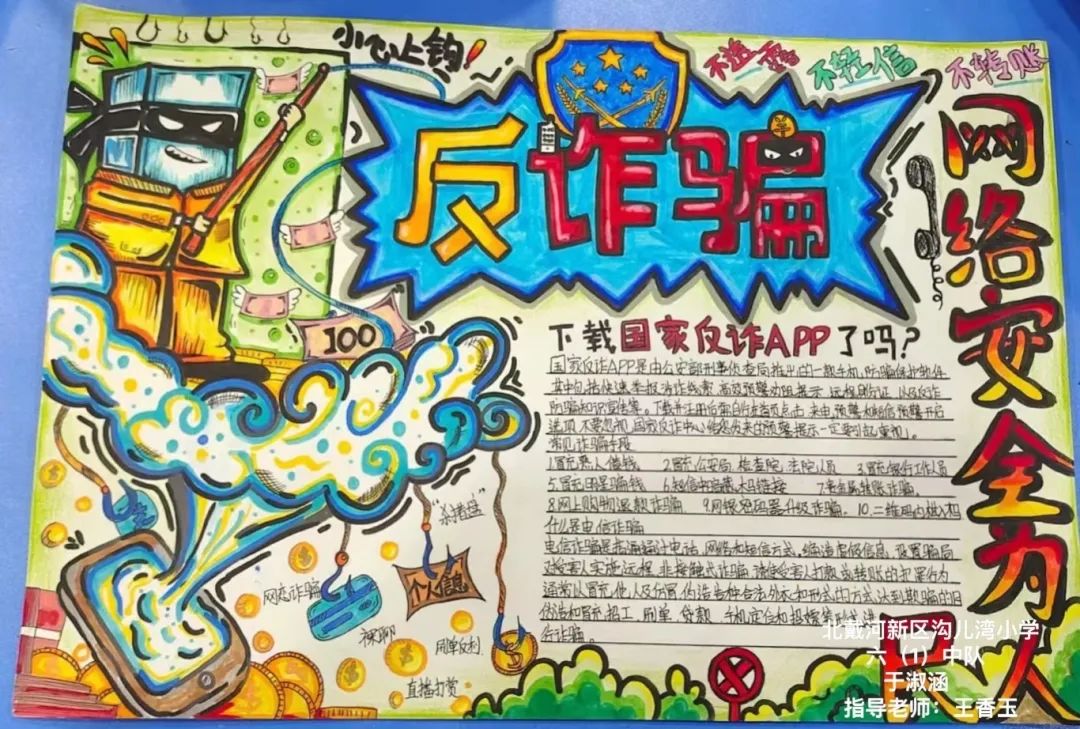 小心上钩!
不透露
不轻信
不转账
反诈骗
网络安全为人人
100
下载国家反诈APP了吗?
国家反诈APP是由公安部刑事侦查局推出的一款手机防骗保护软件
其中包括快速举报涉诈线索 高效预警劝阻提示 远程 证 以及反诈
防骗知识宣传等。下载并注册后 首页点击 来电预警 短信预警 开启
选项 不要忽视 国家反诈中心 发来的预警提示一定要引起重视。
常见诈骗手段
1冒充熟人借钱 2冒充公安局 检查院 法院人员 3冒充银行工作人员
5冒充 骗钱 6短信中 木马链接 7 转账诈骗。
8.网上购物退款诈骗 9.网银 码器升级诈骗。 10.二维码内植入
什么是电信诈骗
电信诈骗是指通过电话、网络和短信方式,编造虚假信息,设置骗局
对受害人实施远程、非接触式诈骗,诱使受害人打款或转账的犯罪行为
通常以冒充他人及仿冒、伪造各种合法外衣和形式的方式达到欺骗的目
伪造和冒充招工、刷单、贷款、手机定位和招嫖等形式进
行诈骗。
"杀猪盘"
个人信息
网恋诈骗
裸聊
刷单返利
直播打赏
北戴河新区沟儿湾小学
六(1)中队
于淑涵
指导老师:王香玉